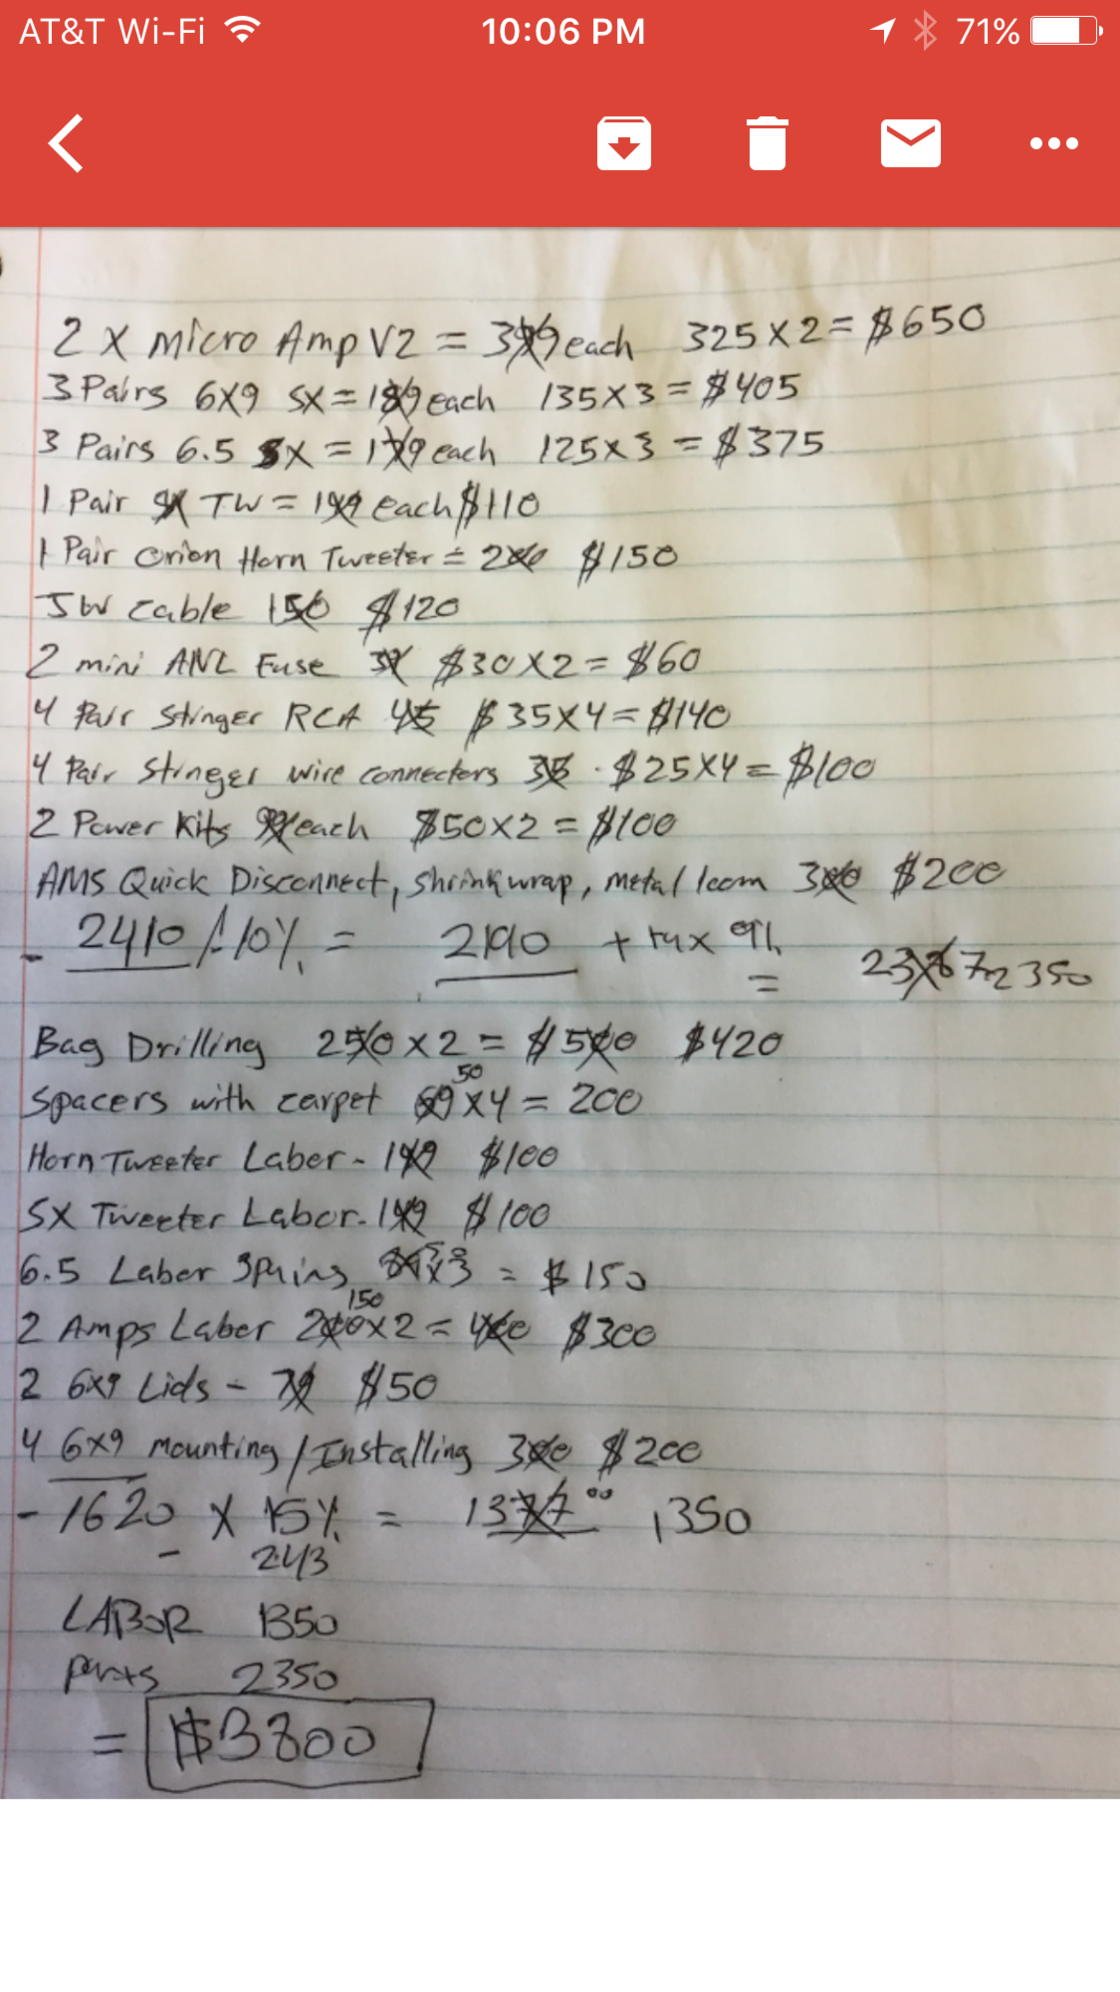 AT&T Wi-Fi 10:06 PM 71%
2 X Micro Amp V2 = 399 each 325 X 2 = $650
3 Pairs 6X9 SX = 189 each 135 X 3 = $405
3 Pairs 6.5 SX = 179 each 125 x 3 = $375
1 Pair SX TW = 199 each $110
1 Pair Orion Horn Tweeter = 200 $150
JW cable 150 $120
2 mini ANL Fuse $30 X 2 = $60
4 Pair Stinger RCA 45 $35 X 4 = $140
4 Pair Stinger wire connecters 35 $25 X 4 = $100
2 Power Kits 99 each $50 X 2 = $100
AMS Quick Disconnect, shrinkwrap, metal loom 300 $200
- 2410 / -10% = 2190 + tax 9% = 2350
Bag Drilling 250 x 2 = $500 $420
Spacers with carpet 69 50 X 4 = 200
Horn Tweeter Laber - 149 $100
SX Tweeter Labor - 149 $100
6.5 Laber 3 Pairs 50 x 3 = $150
2 Amps Laber 200 150 x 2 = 400 $300
2 6x9 Lids - 79 $50
4 6x9 mounting / Installing 300 $200
- 1620 X 15% = 1377 00 1350
- 243
LABOR 1350
Parts 2350
= $3800